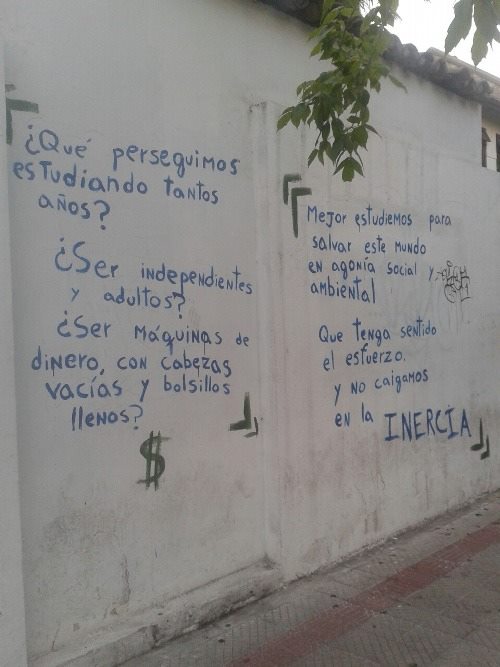 ¿Qué perseguimos
estudiando tantos
años?
¿Ser independientes
y adultos?
¿Ser máquinas de
dinero, con cabezas
vacías y bolsillos
llenos?
$
Mejor estudiemos para
salvar este mundo
en agonía social y
ambiental
Que tenga sentido
el esfuerzo.
y no caigamos
en la INERCIA